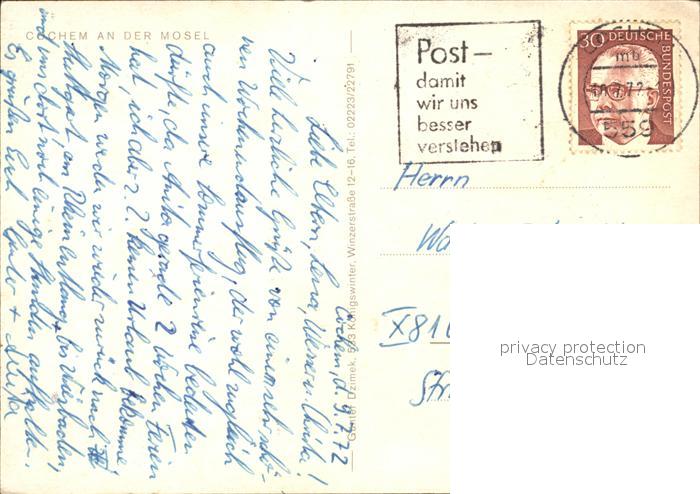 COCHEM AN DER MOSEL
Cochem, d. 9.7.72
Liebe Eltern, Lena, Werner u. Christa!
Viele herzliche Grüße von einem schö-
nen Wochenendausflug, der wohl zugleich
auch unsere Sommerferienreise bedeuten
dürfte, da Anita gerade 2 Wochen Ferien
hat, ich aber z. Z. keinen Urlaub bekomme.
Morgen werden wir wieder zurück nach
Stuttgart, am Rhein entlang bis Wiesbaden,
und uns dort noch einige Stunden aufhalten.
Es grüßen Euch
Günter Dzimek, 533 Königswinter, Winzerstraße 12-16, Tel.: 02223/22791
Post-
damit
wir uns
besser
verstehen
30 DEUTSCHE
BUNDESPOST
mb
559
Herrn
X81
Str
privacy protection
Datenschutz